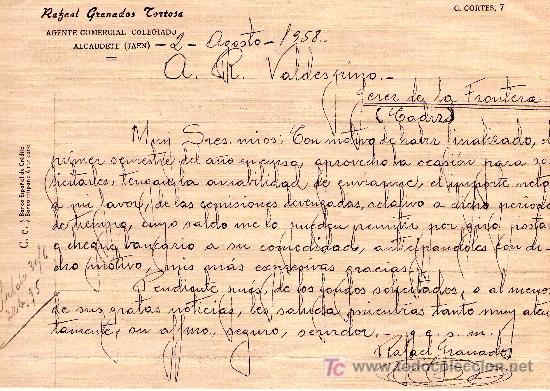 Rafael Granados Tortosa
AGENTE COMERCIAL COLEGIADO
ALCAUDETE (JAEN)
C. CORTES, 7
-2- Agosto -/1958.-
A. R. Valdespino.-
Jerez de la Frontera
(Cadiz)
Muy Sres. mios: Con motivo de haber finalizado, el
primer semestre del año en curso, aprovecho la ocasión para so-
licitarles, tengan la amabilidad de enviarme, el importe neto
a mi favor, de las comisiones devengadas, relativo a dicho periodo
de tiempo, cuyo saldo me lo pueden remitir por giro postal
o cheque bancario a su comodidad, anticipandoles con di-
cho motivo, mis más expresivas gracias.
Pendiente pues, de los fondos solicitados, o al menos
de sus gratas noticias, les saluda mientras tanto muy aten-
tamente, su afmo. seguro, servidor.-
q. e. s. m.
Rafael Granados
C. c.
Banco Español de Crédito
Banco Hispano
TC todocoleccion.net